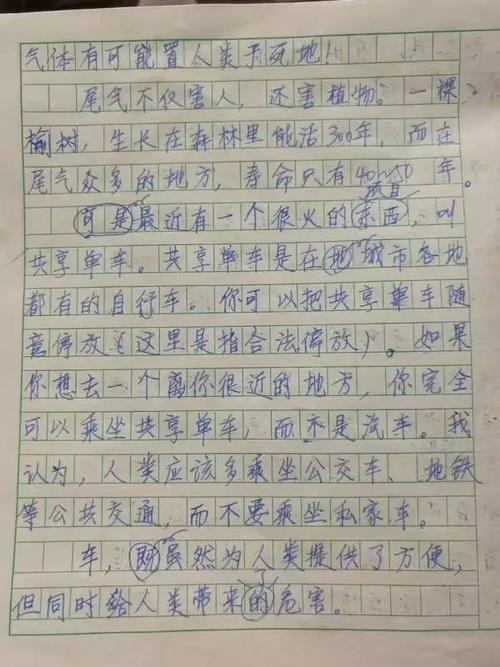 气体有可能置人类于死地！
尾气不仅害人，还害植物。一棵
榆树，生长在森林里能活300年，而在
尾气众多的地方，寿命只有40~50年。
项目
可是最近有一个很火的东西，叫
共享单车。共享单车是在地城市各地
都有的自行车。你可以把共享单车随
意停放（这里是指合法停放）。如果
你想去一个离你很近的地方，你完全
可以乘坐共享单车，而不是汽车。我
认为，人类应该多乘坐公交车、地铁
等公共交通，而不要乘坐私家车。
车，既虽然为人类提供了方便，
了
但同时给人类带来的危害。